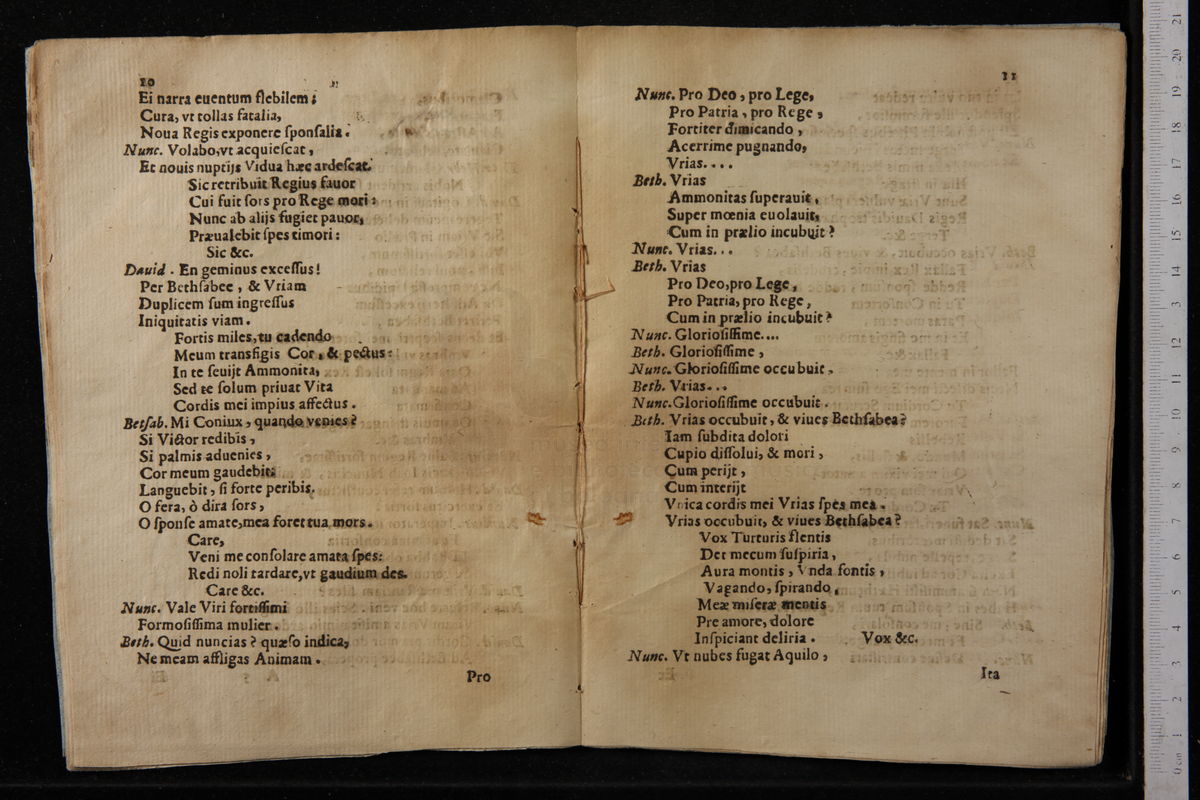 10
Ei narra euentum flebilem;
Cura, vt tollas fatalia,
Noua Regis exponere ſponſalia.
Nunc. Volabo, vt acquieſcat,
Et nouis nuptijs Vidua hæc ardeſcat.
Sic retribuit Regius fauor
Cui fuit ſors pro Rege mori:
Nunc ab alijs fugiet pauor,
Præualebit ſpes timori:
Sic &c.
Dauid. En geminus exceſſus!
Per Bethſabee, & Vriam
Duplicem ſum ingreſſus
Iniquitatis viam.
Fortis miles, tu cadendo
Meum transfigis Cor, & pectus:
In te ſeuijt Ammonita,
Sed te ſolum priuat Vita
Cordis mei impius affectus.
Betſab. Mi Coniux, quando venies?
Si Victor redibis,
Si palmis aduenies,
Cor meum gaudebit:
Languebit, ſi forte peribis.
O fera, ò dira ſors,
O ſponſe amate, mea foret tua mors.
Care,
Veni me conſolare amata ſpes:
Redi noli tardare, vt gaudium des.
Care &c.
Nunc. Vale Viri fortiſſimi
Formoſiſſima mulier.
Beth. Quid nuncias? quæſo indica,
Ne meam affligas Animam.
Pro
11
Nunc. Pro Deo, pro Lege,
Pro Patria, pro Rege,
Fortiter dimicando,
Acerrime pugnando,
Vrias....
Beth. Vrias
Ammonitas ſuperauit,
Super mœnia euolauit,
Cum in prælio incubuit?
Nunc. Vrias...
Beth. Vrias
Pro Deo, pro Lege,
Pro Patria, pro Rege,
Cum in prælio incubuit?
Nunc. Glorioſiſſime....
Beth. Glorioſiſſime,
Nunc. Glorioſiſſime occubuit.
Beth. Vrias...
Nunc. Glorioſiſſime occubuit.
Beth. Vrias occubuit, & viues Bethſabea?
Iam ſubdita dolori
Cupio diſſolui, & mori,
Cum perijt,
Cum interijt
Vnica cordis mei Vrias ſpes mea.
Vrias occubuit, & viues Bethſabea?
Vox Turturis flentis
Det mecum ſuſpiria,
Aura montis, Vnda fontis,
Vagando, ſpirando,
Meæ miſeræ mentis
Pre amore, dolore
Inſpiciant deliria. Vox &c.
Nunc. Vt nubes fugat Aquilo,
Ita